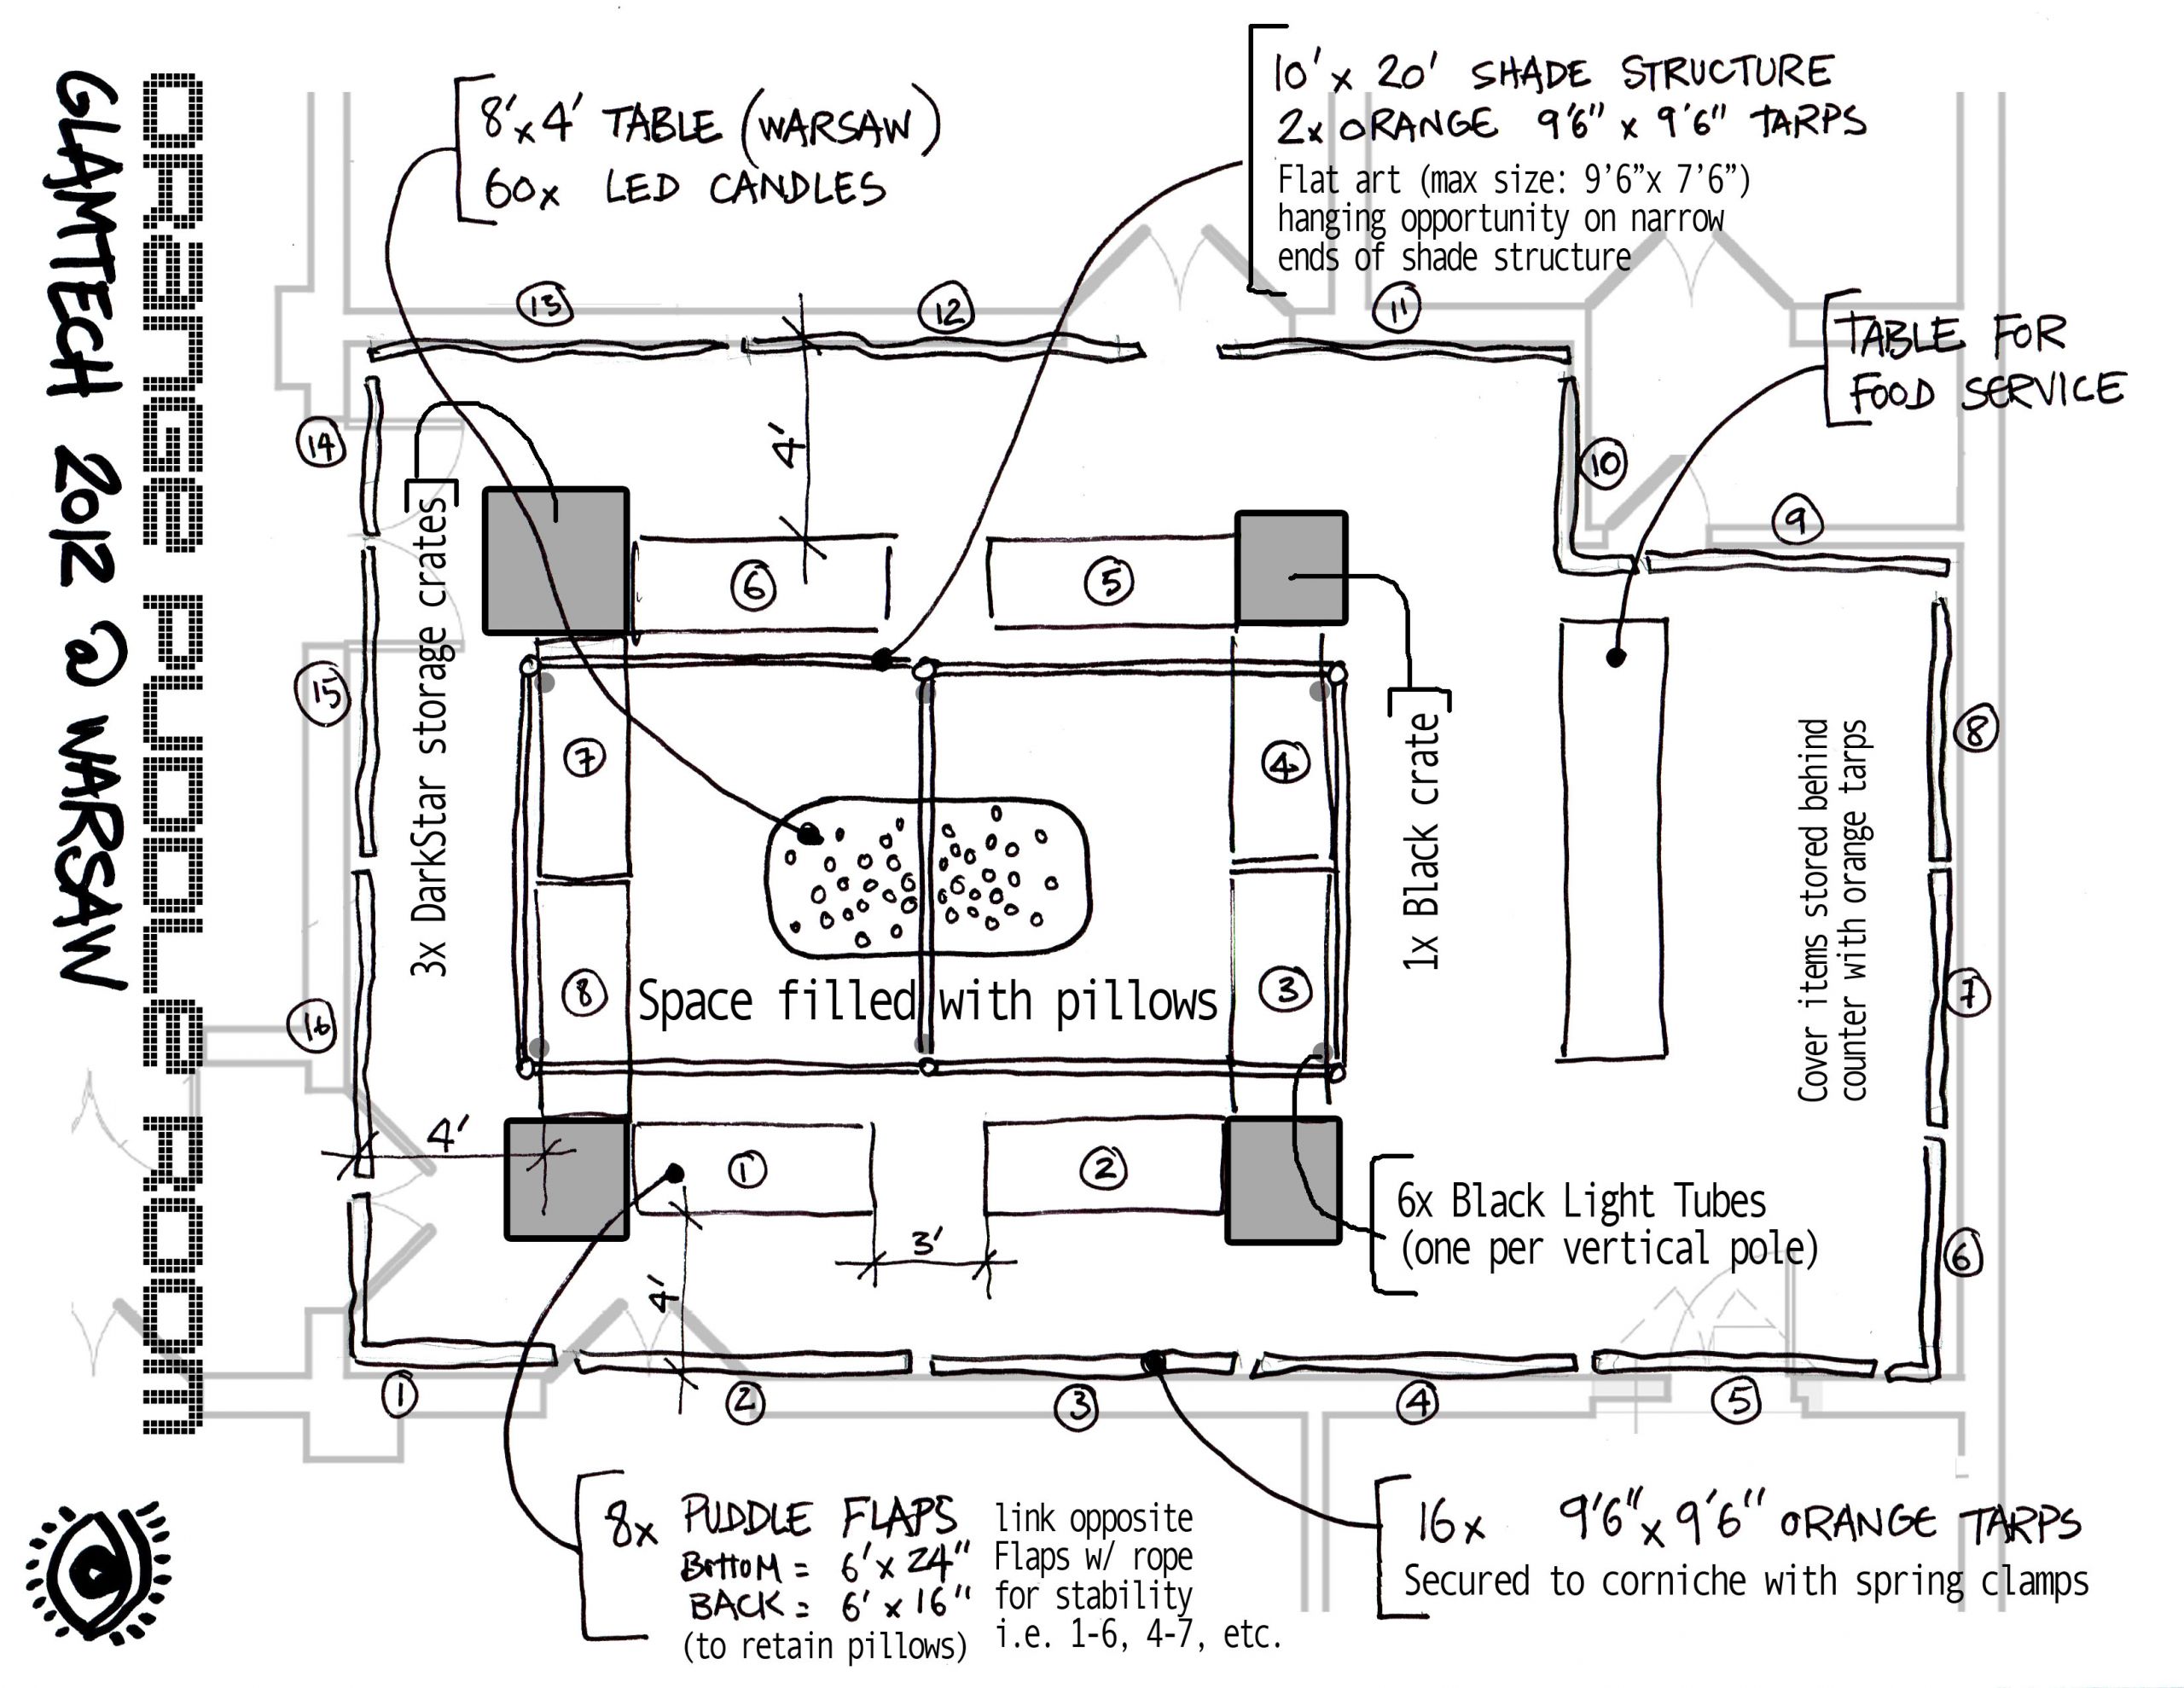 ORANGE PUDDLE ROOM
GLAMTECH 2012 @ WARSAW
8'x4' TABLE (WARSAW)
60x LED CANDLES
10' x 20' SHADE STRUCTURE
2x ORANGE 9'6" x 9'6" TARPS
Flat art (max size: 9'6"x 7'6")
hanging opportunity on narrow
ends of shade structure
TABLE FOR
FOOD SERVICE
13
12
11
14
10
9
4'
3x DarkStar storage crates
6
5
15
7
4
8
1x Black crate
Cover items stored behind
counter with orange tarps
8
3
7
Space filled with pillows
16
4'
1
2
6x Black Light Tubes
(one per vertical pole)
3'
6
4'
1
2
3
4
5
8x PUDDLE FLAPS
BOTTOM = 6' x 24"
BACK = 6' x 16"
(to retain pillows)
link opposite
Flaps w/ rope
for stability
i.e. 1-6, 4-7, etc.
16x 9'6" x 9'6" ORANGE TARPS
Secured to corniche with spring clamps